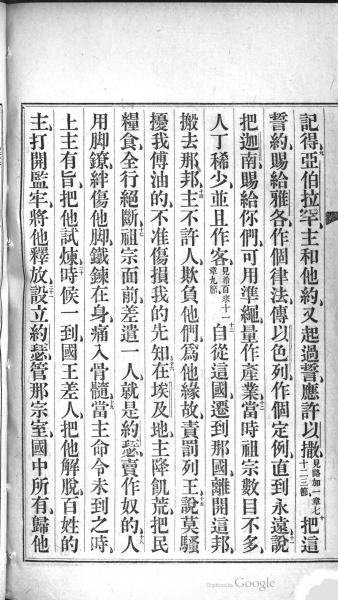 記得亞伯拉罕主和他約又起過誓應許以撒見路加一章七十二三節把這
誓約賜給雅各作個律法傳以色列作個定例直到永遠說
把迦南賜給你們可用準繩量作產業當時祖宗數目不多
人丁稀少並且作客見希百來十一章九節自從這國遷到那國離開這邦
搬去那邦主不許人欺負他們爲他緣故責罰列王說莫騷
擾我傅油的不准傷損我的先知在埃及地主降飢荒把民
糧食全行絕斷祖宗面前差遣一人就是約瑟賣作奴的人
用脚鐐絆傷他脚鐵鍊在身痛入骨髓當主命令未到之時
上主有旨把他試煉時候一到國王差人把他解脫百姓的
主打開監牢將他釋放設立約瑟管那宗室國中所有歸他
Digitized by Google